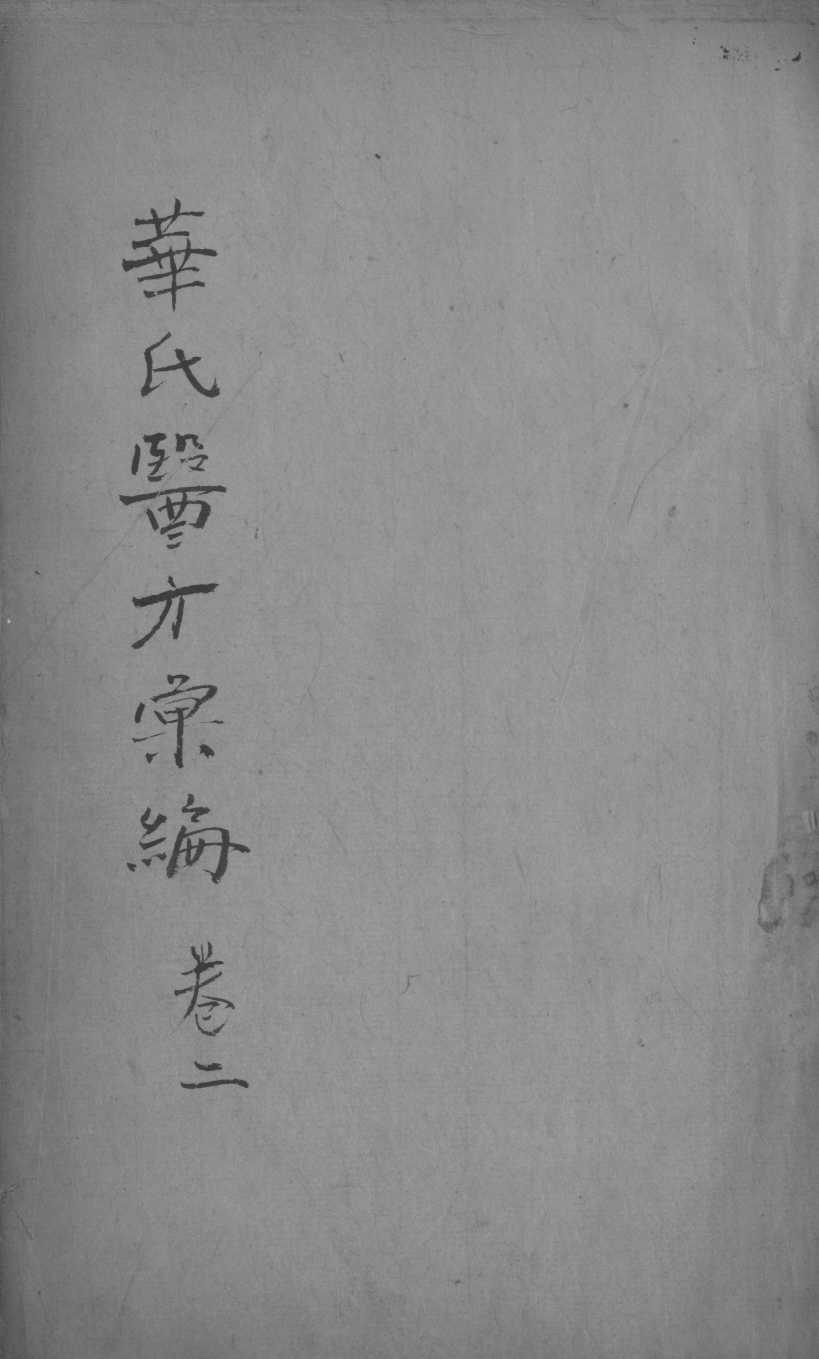 華氏醫方彙編
卷二